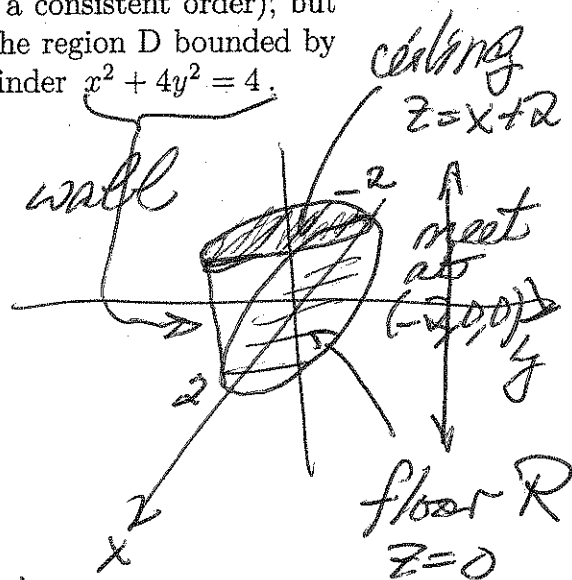 a consistent order); but
he region D bounded by
inder x² + 4y² = 4.
ceiling
z=x+2
wall
-2
meet
at
(-2,0,0)
y
2
x
floor R
z=0